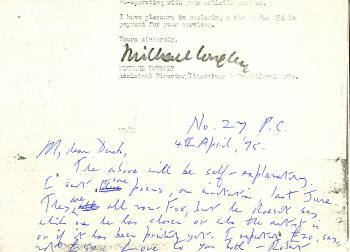 co-operating with your artistic
I have pleasure in enclosing a cheque for £50 in
payment for your services.
Yours sincerely,
Michael Longley
MICHAEL LONGLEY
Assistant Director/Literature & Traditional Arts.
No. 27 P.C.
4th April, 75.
My dear
The above will be self-explanatory.
I sent poems, on invitation last June.
They are all now Fox, but he doesn't say
which one he has chosen or who the artist is
or if it has been printed yet. I say,
Love to you both